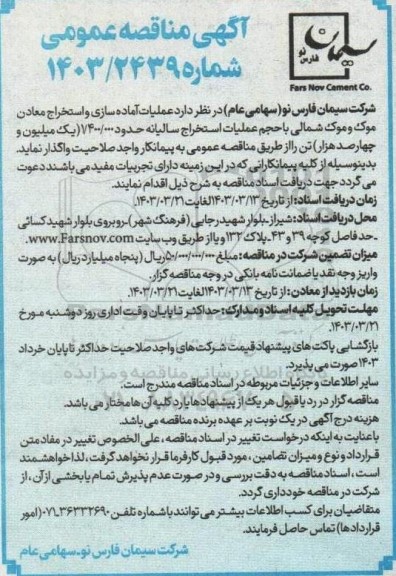 آگهی مناقصه عمومی
شماره ۱۴۰۳/۲۴۳۹
سیمان
فارس نو
Fars Nov Cement Co.
شرکت سیمان فارس نو (سهامی عام) در نظر دارد عملیات آماده سازی و استخراج معادن
موک و موک شمالی با حجم عملیات استخراج سالیانه حدود ۱/۴۰۰/۰۰۰ (یک میلیون و
چهارصد هزار) تن را از طریق مناقصه عمومی به پیمانکار واجد صلاحیت واگذار نماید.
بدینوسیله از کلیه پیمانکارانی که در این زمینه دارای تجربیات مفید می باشند دعوت
می گردد جهت دریافت اسناد مناقصه به شرح ذیل اقدام نمایند.
زمان دریافت اسناد: از تاریخ ۱۴۰۳/۰۳/۱۳ لغایت ۱۴۰۳/۰۳/۲۱.
محل دریافت اسناد: شیراز ـ بلوار شهید رجایی (فرهنگ شهر) ـ روبروی بلوار شهید کسائی
ـ حد فاصل کوچه ۳۹ و ۴۳ ـ پلاک ۱۳۲ و یا از طریق وب سایت www.Farsnov.com.
میزان تضمین شرکت در مناقصه: مبلغ ۵۰/۰۰۰/۰۰۰/۰۰۰ ریال (پنجاه میلیارد ریال) به صورت
واریز وجه نقد یا ضمانت نامه بانکی در وجه مناقصه گزار.
زمان بازدید از معادن: از تاریخ ۱۴۰۳/۰۳/۱۳ لغایت ۱۴۰۳/۰۳/۲۱.
مهلت تحویل کلیه اسناد و مدارک: حداکثر تا پایان وقت اداری روز دوشنبه مورخ
۱۴۰۳/۰۳/۲۱.
بازگشایی پاکت های پیشنهاد قیمت شرکت های واجد صلاحیت حداکثر تا پایان خرداد
۱۴۰۳ صورت می پذیرد.
سایر اطلاعات و جزئیات مربوطه در اسناد مناقصه مندرج است.
مناقصه گزار در رد یا قبول هر یک از پیشنهادها یا رد کلیه آن ها مختار می باشد.
هزینه درج آگهی در یک نوبت بر عهده برنده مناقصه می باشد.
با عنایت به اینکه درخواست تغییر در اسناد مناقصه، علی الخصوص تغییر در مفاد متن
قرارداد و نوع و میزان تضامین، مورد قبول کارفرما قرار نخواهد گرفت، لذا خواهشمند
است، اسناد مناقصه به دقت بررسی و در صورت عدم پذیرش تمام یا بخشی از آن، از
شرکت در مناقصه خودداری گردد.
متقاضیان برای کسب اطلاعات بیشتر می توانند با شماره تلفن ۳۶۲۳۲۶۹۰-۰۷۱ (امور
قراردادها) تماس حاصل فرمایند.
شرکت سیمان فارس نو ـ سهامی عام